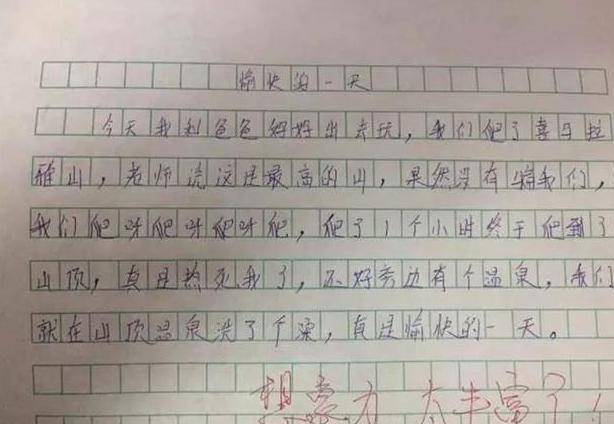 愉快的一天
今天我和爸爸妈妈出去玩，我们爬了喜马拉
雅山，老师说这是最高的山，果然没有骗我们，
我们爬呀爬呀爬呀爬，爬了1个小时终于爬到了
山顶，真是热死我了，还好旁边有个温泉，我们
就在山顶温泉洗了个澡，真是愉快的一天。
想象力太丰富了！